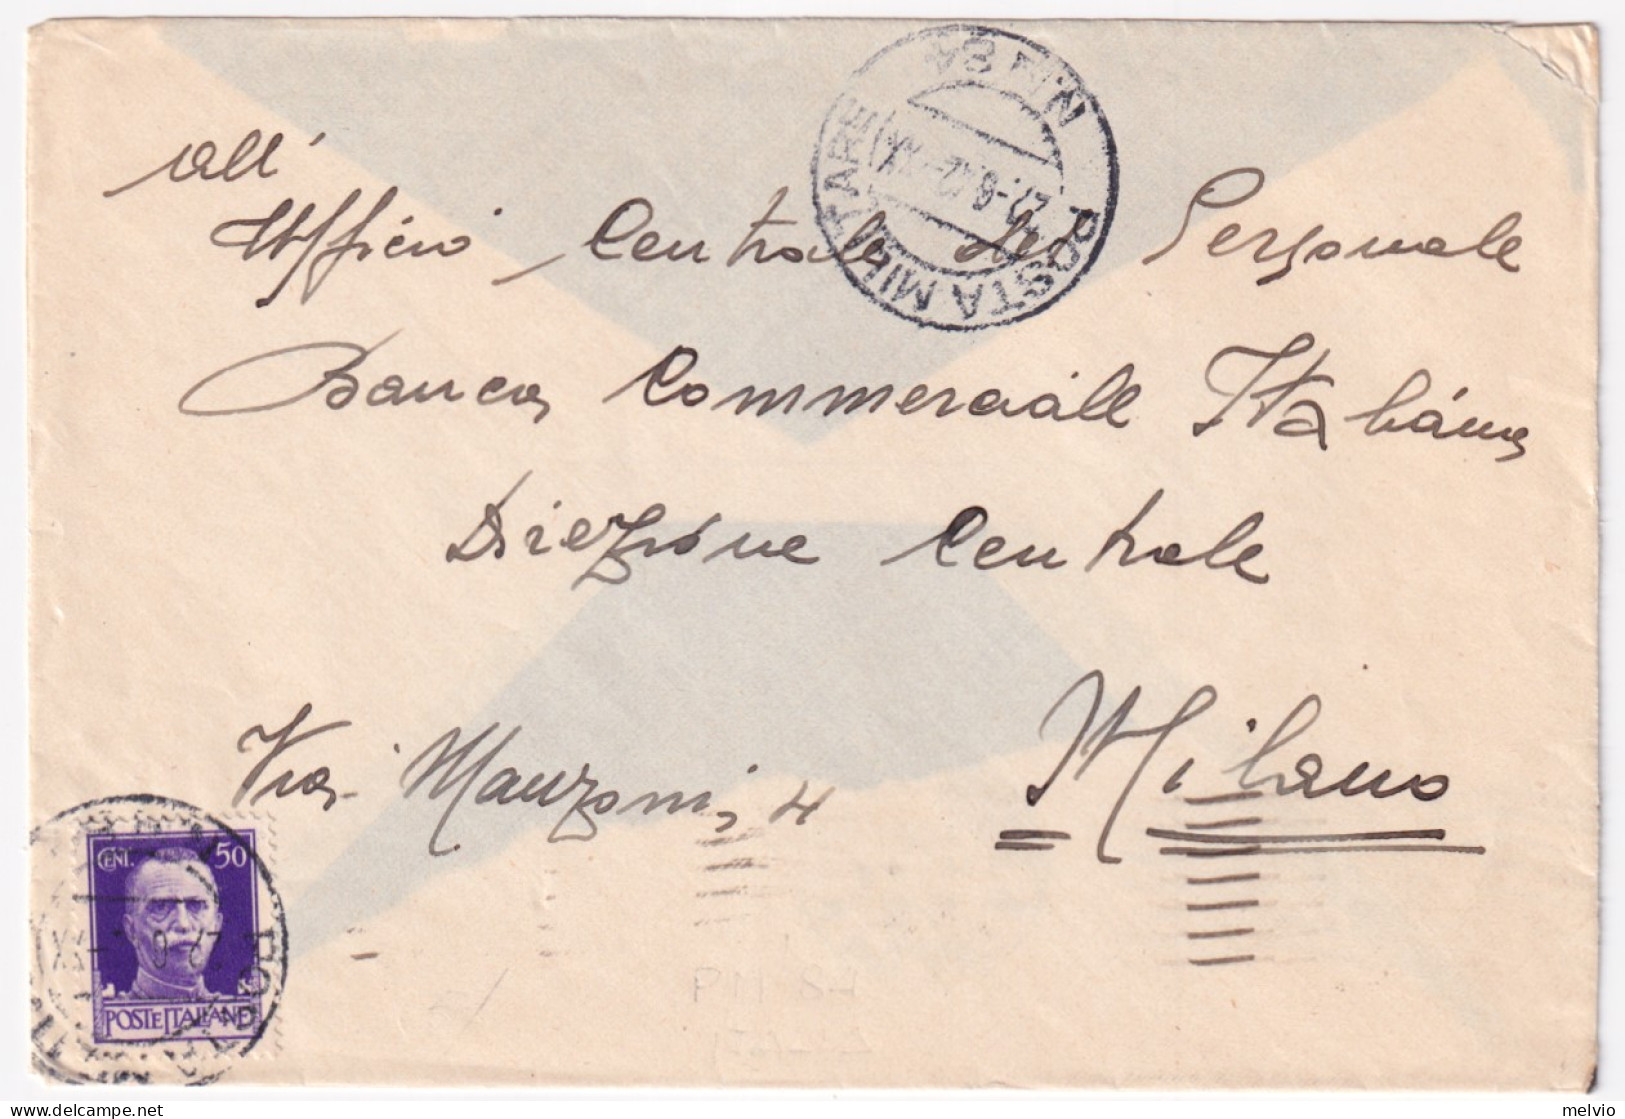 all'
Ufficio Centrale del Personale
Banca Commerciale Italiana
Direzione Centrale
Via Manzoni, 4 Milano
POSTA MILITARE N. 84
27.6.42-XX
CENT. 50
POSTE ITALIANE
PM 84
melvio